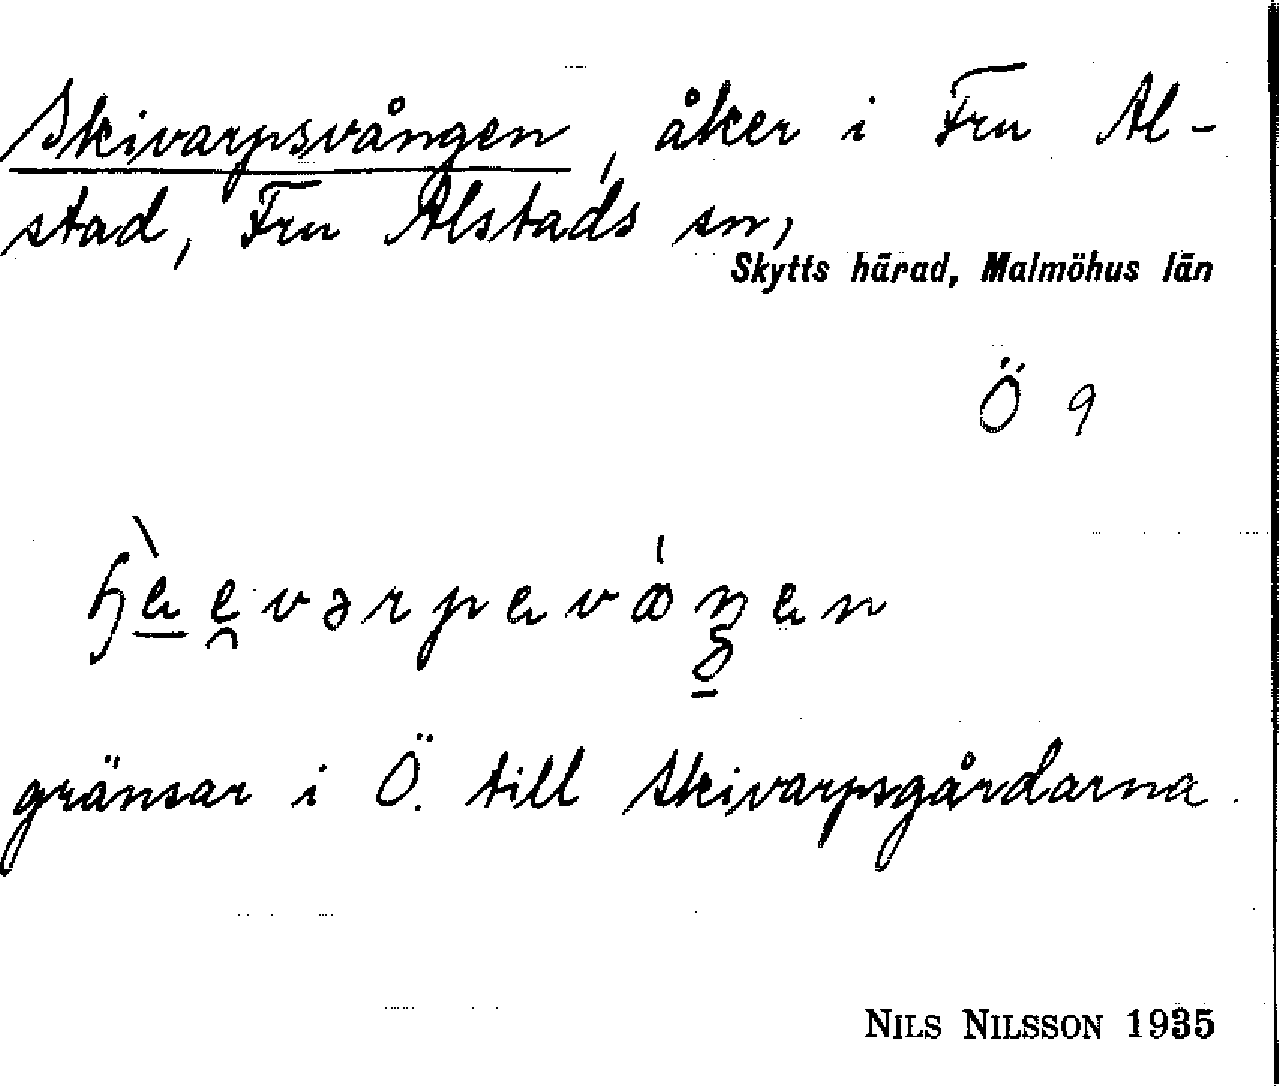 Skivarpsvången, åker i Fru Al-
stad, Fru Alstads sn,
Skytts härad, Malmöhus län
Ö 9
gränsar i Ö. till Skivarpsgårdarna.
NILS NILSSON 1935